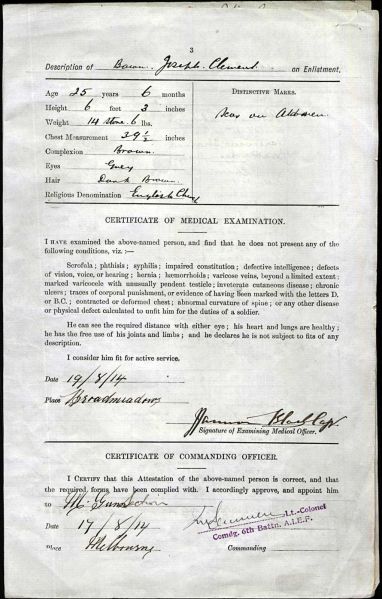 3
Description of Bacon Joseph Clement on Enlistment.
Age 25 years 6 months
Height 6 feet 3 inches
Weight 14 stone 6 lbs.
Chest Measurement 39½ inches
Complexion Brown
Eyes Grey
Hair Dark Brown
Religious Denomination English Chu
DISTINCTIVE MARKS.
Scar on Abdomen
CERTIFICATE OF MEDICAL EXAMINATION.
I HAVE examined the above-named person, and find that he does not present any of the
following conditions, viz.:—
Scrofula; phthisis; syphilis; impaired constitution; defective intelligence; defects
of vision, voice, or hearing; hernia; hæmorrhoids; varicose veins, beyond a limited extent;
marked varicocele with unusually pendent testicle; inveterate cutaneous disease; chronic
ulcers; traces of corporal punishment, or evidence of having been marked with the letters D.
or B.C.; contracted or deformed chest; abnormal curvature of spine; or any other disease
or physical defect calculated to unfit him for the duties of a soldier.
He can see the required distance with either eye; his heart and lungs are healthy;
he has the free use of his joints and limbs; and he declares he is not subject to fits of any
description.
I consider him fit for active service.
Date 19/8/14
Place Broadmeadows
Signature of Examining Medical Officer.
CERTIFICATE OF COMMANDING OFFICER.
I CERTIFY that this Attestation of the above-named person is correct, and that
the required forms have been complied with. I accordingly approve, and appoint him
to M. Gun Section
Lt.-Colonel
Date 17/8/14
Comdg. 6th Battn. A.I.E.F.
Place Melbourne
Commanding